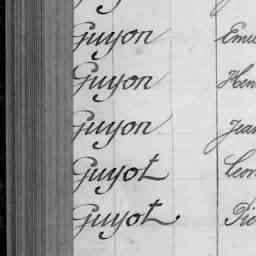 Guyon Emi
Guyon Hen
Guyon Jean
Guyot Leon
Guyot Pie